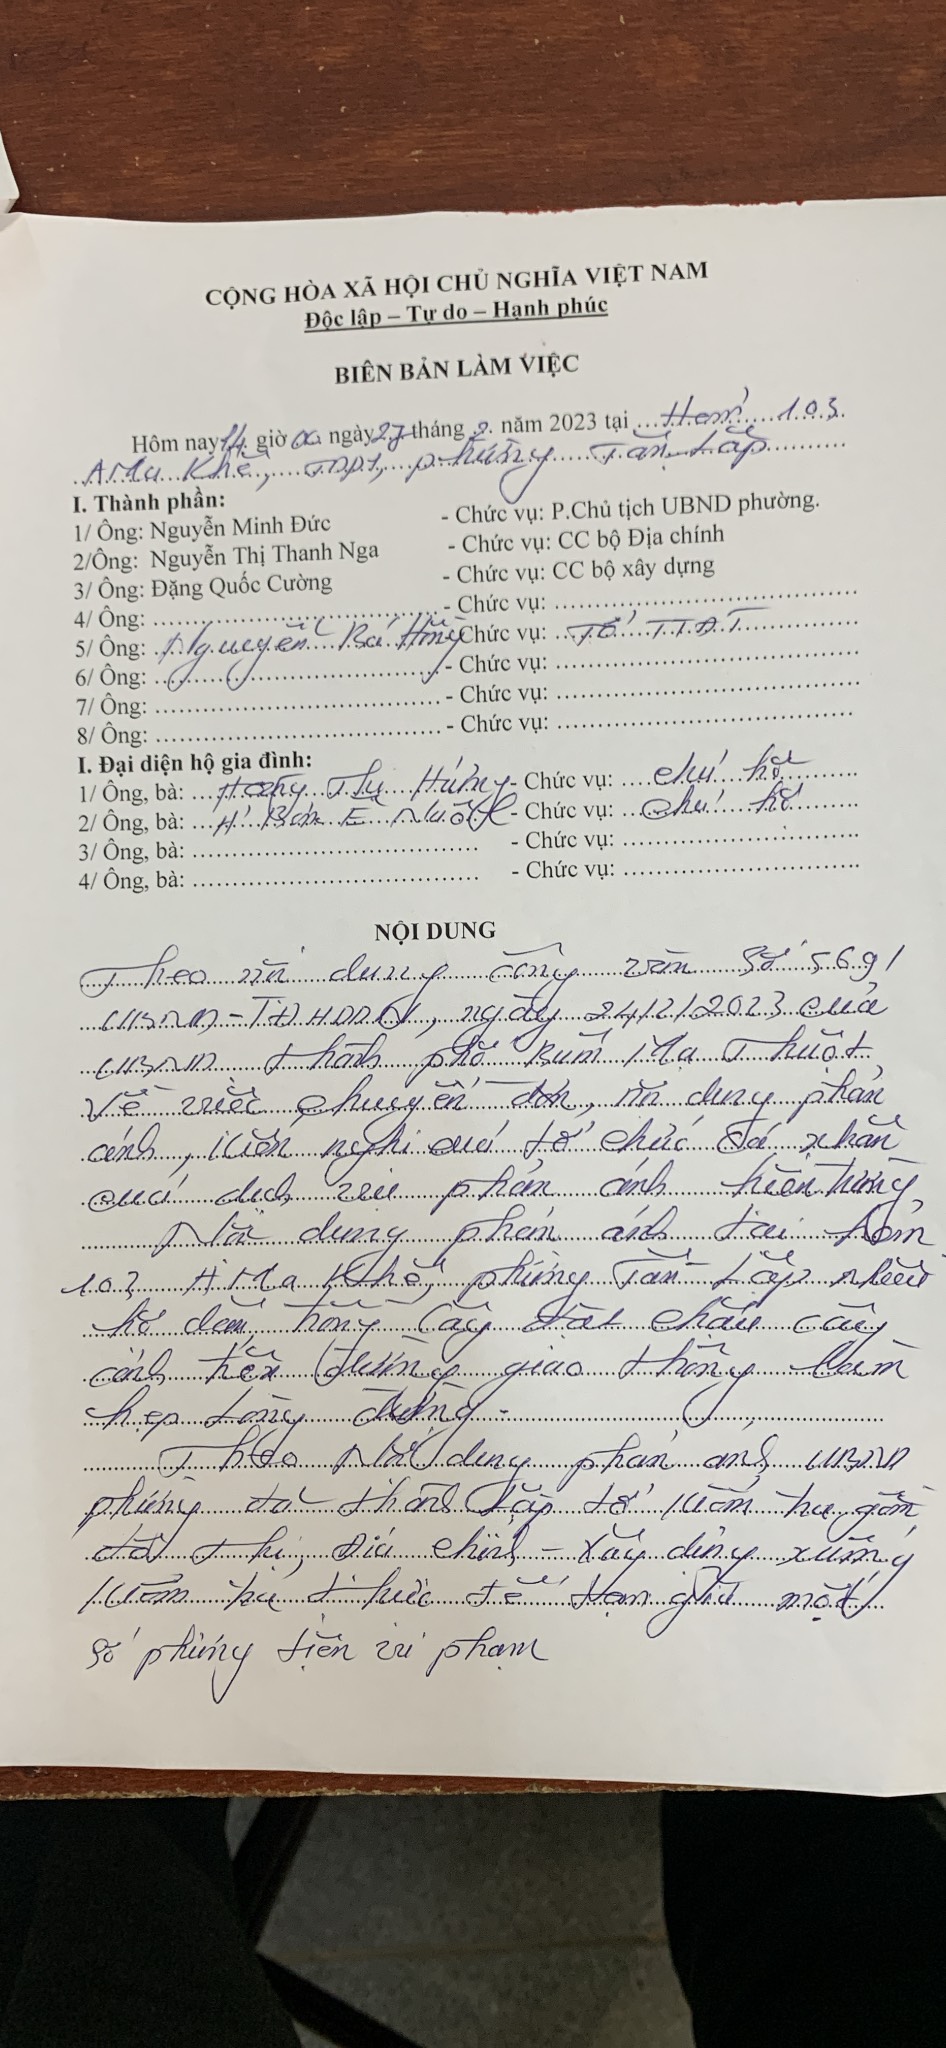 CỘNG HÒA XÃ HỘI CHỦ NGHĨA VIỆT NAM
Độc lập – Tự do – Hạnh phúc
BIÊN BẢN LÀM VIỆC
Hôm nay 14 giờ 00 ngày 27 tháng 2 năm 2023 tại Hẻm 103
AMa Khê, TDP1, phường Tân Lập
I. Thành phần:
1/ Ông: Nguyễn Minh Đức - Chức vụ: P.Chủ tịch UBND phường.
2/Ông: Nguyễn Thị Thanh Nga - Chức vụ: CC bộ Địa chính
3/ Ông: Đặng Quốc Cường - Chức vụ: CC bộ xây dựng
4/ Ông: - Chức vụ:
5/ Ông: Nguyễn Bá - Chức vụ: Tổ TTĐT
6/ Ông: - Chức vụ:
7/ Ông: - Chức vụ:
8/ Ông: - Chức vụ:
I. Đại diện hộ gia đình:
1/ Ông, bà: - Chức vụ: chủ hộ
2/ Ông, bà: - Chức vụ: chủ hộ
3/ Ông, bà: - Chức vụ:
4/ Ông, bà: - Chức vụ:
NỘI DUNG
Theo nội dung công văn số 5691
UBND-TĐHDDN, ngày 24/2/2023 của
UBND thành phố Buôn Ma Thuột
Về việc chuyển đơn, nội dung phản
ánh, kiến nghị của tổ chức cá nhân
qua dịch vụ phản ánh hiện trường
Nội dung phản ánh tại hẻm
103 AMa Khê, phường Tân Lập nhiều
hộ dân trồng cây đặt chậu cây
cảnh trên đường giao thông làm
hẹp lòng đường.
Theo Nội dung phản ánh UBND
phường đã thành lập tổ kiểm tra gồm
đô thị, Địa chính - Xây dựng xuống
kiểm tra thực tế tạm giữ một
số phương tiện vi phạm